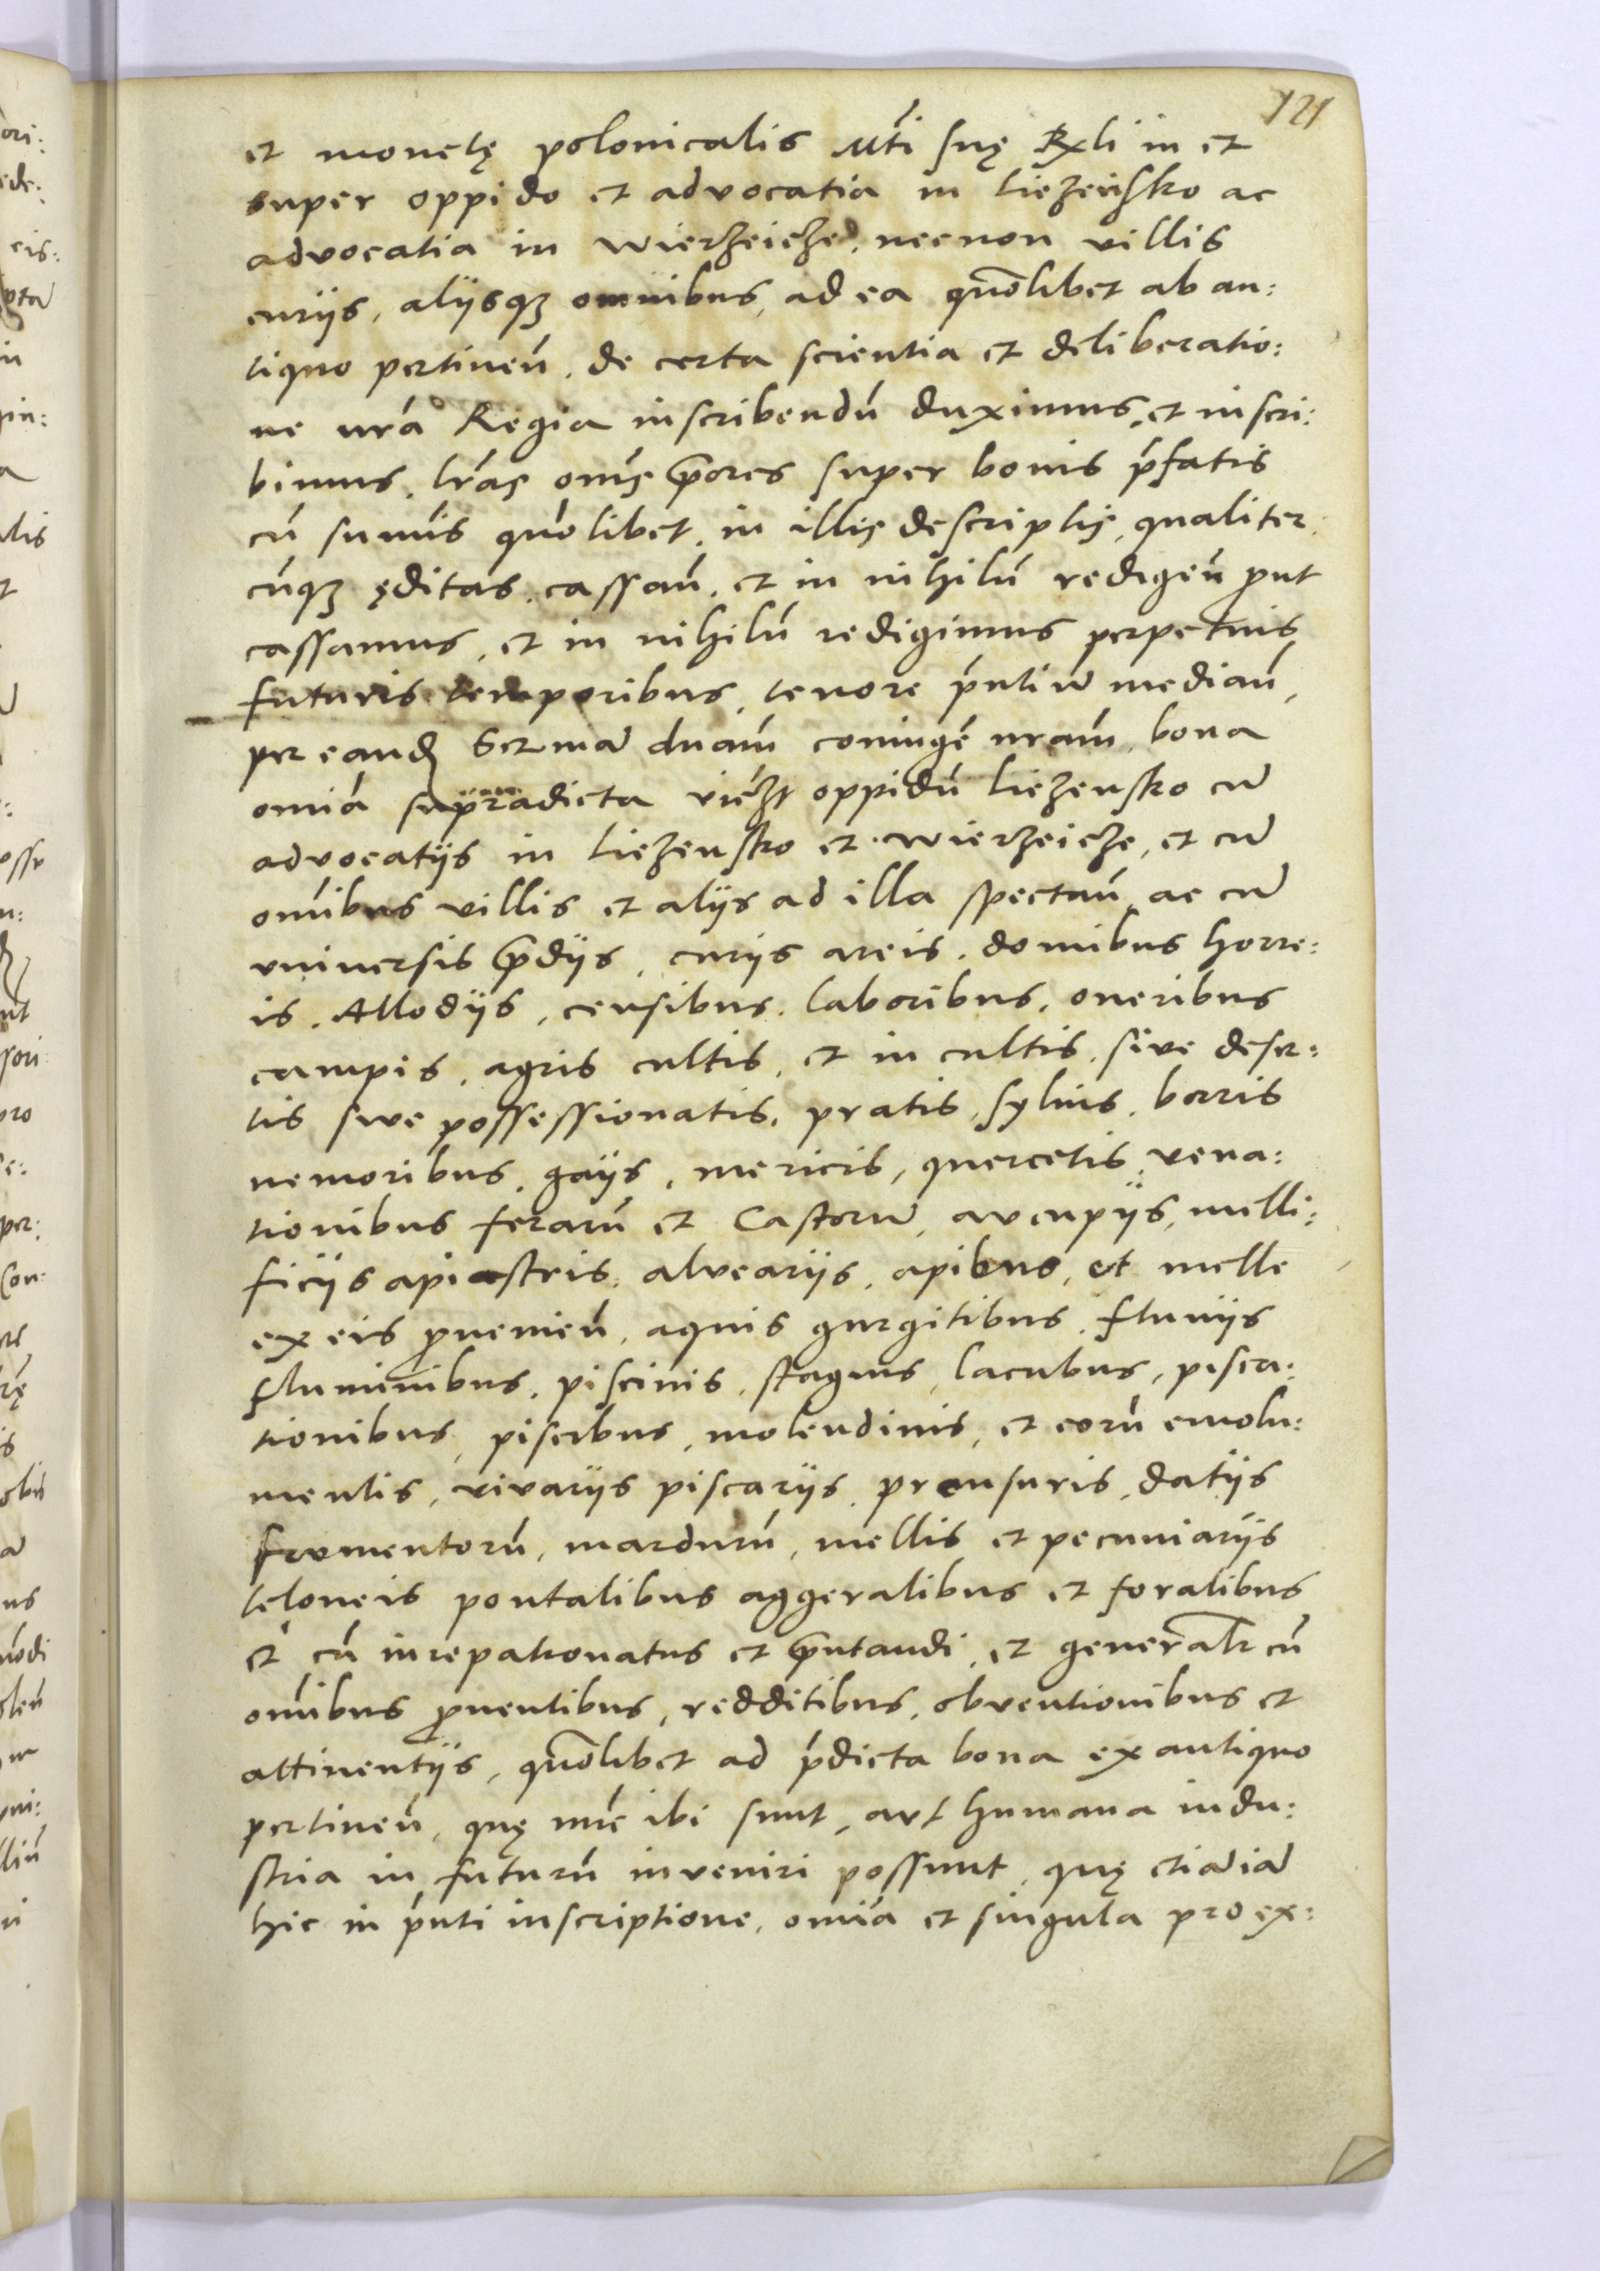 121
et monetę polonicalis Mti suę Rxli in et
super oppido et advocatia in Liezensko ac
advocatia in Wierzeicze, necnon villis
curijs, alijsqꝫ omnibus, ad ea quōlibet ab an:
tiquo pertineń, de certa scientia et deliberatio:
ne nrá Regia inscribendú duximus, et inscri:
bimus. lrás onís priores super bonis pŕfatis
cú sumís quolibet, in illis descriptis, qualiter
cúnqꝫ ęditas, cassań, et in nihilú redigeń prout
cassamus, et in nihilú redigimus perpetuis
futuris temporibus, tenore pńtiū mediań,
per eandꝫ Sermā dnám coniugé nrám, bona
omiá supradicta vidét oppidú Liezensko cū
advocatijs in Liezensko et Wierzeicze, et cū
omíbus villis et alijs ad illa spectań, ac cū
universis prędijs, curijs areis, domibus horre:
is, Allodijs, censibus, laboribus, oneribus
campis, agris cultis, et in cultis, sive deser:
tis sive possessionatis, pratis, sylvis, borris
nemoribus, gaijs, mericis, quercetis, vena:
tionibus ferarú et Castorū, aucupijs, melli:
ficijs apiastris, alvearijs, apibus, et melle
ex eis provenień, aquis gurgitibus, fluvijs
fluminibus, piscinis, stagnis, lacubus, pisca:
tionibus, piscibus, molendinis, et eorú emolu:
mentis, vivarijs piscarijs, prensuris, datijs
frumentorú, mardurú, mellis et pecuniarijs
teloneis pontalibus aggeralibus et foralibus
et cú iurepatronatus et pręntandi, et generalr cú
omíbus proventibus, redditibus, obventionibus et
attinentijs, quōlibet ad pŕdicta bona ex antiquo
pertineń, quę núc ibi sunt, aut humana indu:
stria in futurú inveniri possunt, quę etiā iā
hic in pńti inscriptione, omía et singula pro ex: